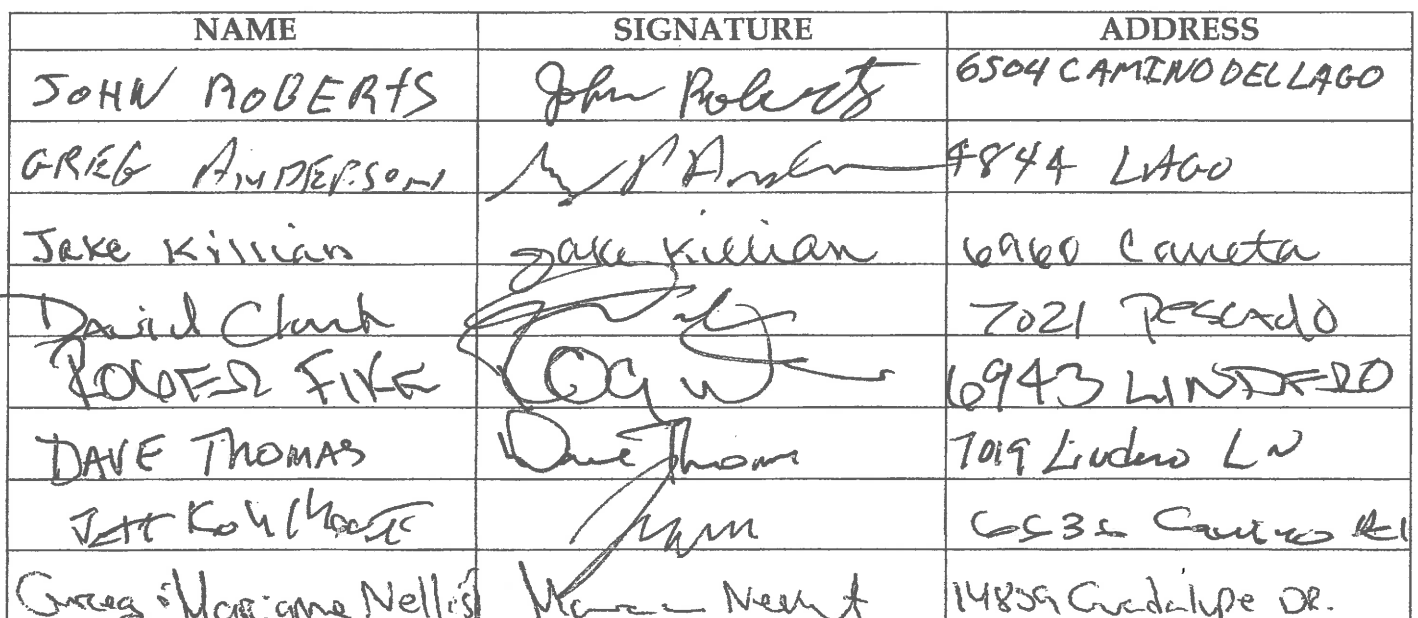 NAME SIGNATURE ADDRESS
JOHN ROBERTS John Roberts 6504 CAMINO DEL LAGO
GREG ANDERSON 4844 LAGO
Jake Killian Jake Killian 6960
David Clark 7021 Pescado
ROGER FIKE 6943 LINDERO
DAVE THOMAS Dave Thomas 7019 Lindero LN
Jeff Camino del
Greg & Marianne Nellis 14839 Guadalupe DR.